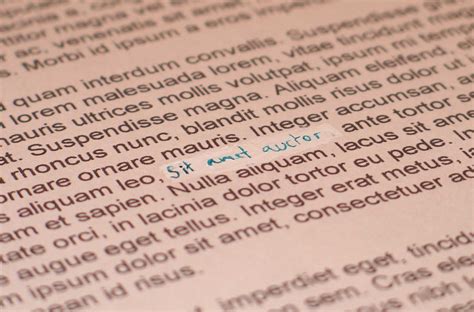 ac, venenatis
Morbi id ipsum a eros
quam interdum convallis. Suspendisse
lorem malesuada lorem, vitae tincidunt
mauris ultrices mollis volutpat, ipsum mi
at. Suspendisse magna. Aliquam eleifend.
rhoncus nunc, blandit mollis risus dolor ut
ornare mauris. Integer accumsan,
aliquam leo, Sit amet auctor ante tortor
am et sapien. Nulla aliquam, lacus sit
tate orci, in lacinia dolor tortor eu pede.
augue eget tellus. Integer erat metus,
m ipsum dolor sit amet, consectetuer
an id risus.
imperdiet eget, tincid
sem. Cras